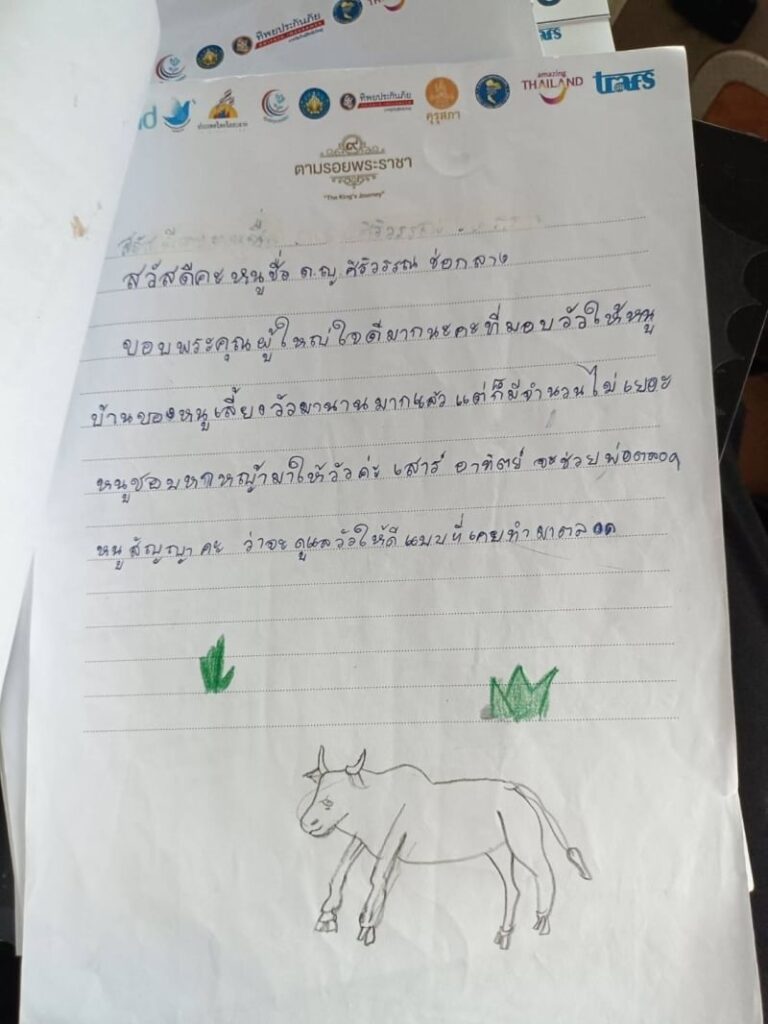 ทิพยประกันภัย
ทิพยประกันภัย
คุรุสภา
amazing
THAILAND
trafs
๙
ตามรอยพระราชา
"The King's Journey"
สวัสดีคะ หนูชื่อ ด.ญ. ศิริวรรณ ช่อกลาง
ขอบพระคุณผู้ใหญ่ใจดีมากนะคะที่มอบวัวให้หนู
บ้านของหนูเลี้ยงวัวมานานมากแล้ว แต่ก็มีจำนวนไม่เยอะ
หนูชอบหาหญ้ามาให้วัวค่ะ เสาร์ อาทิตย์ จะช่วยพ่อตลอด
หนูสัญญาคะ ว่าจะดูแลวัวให้ดีแบบที่เคยทำมาตลอด